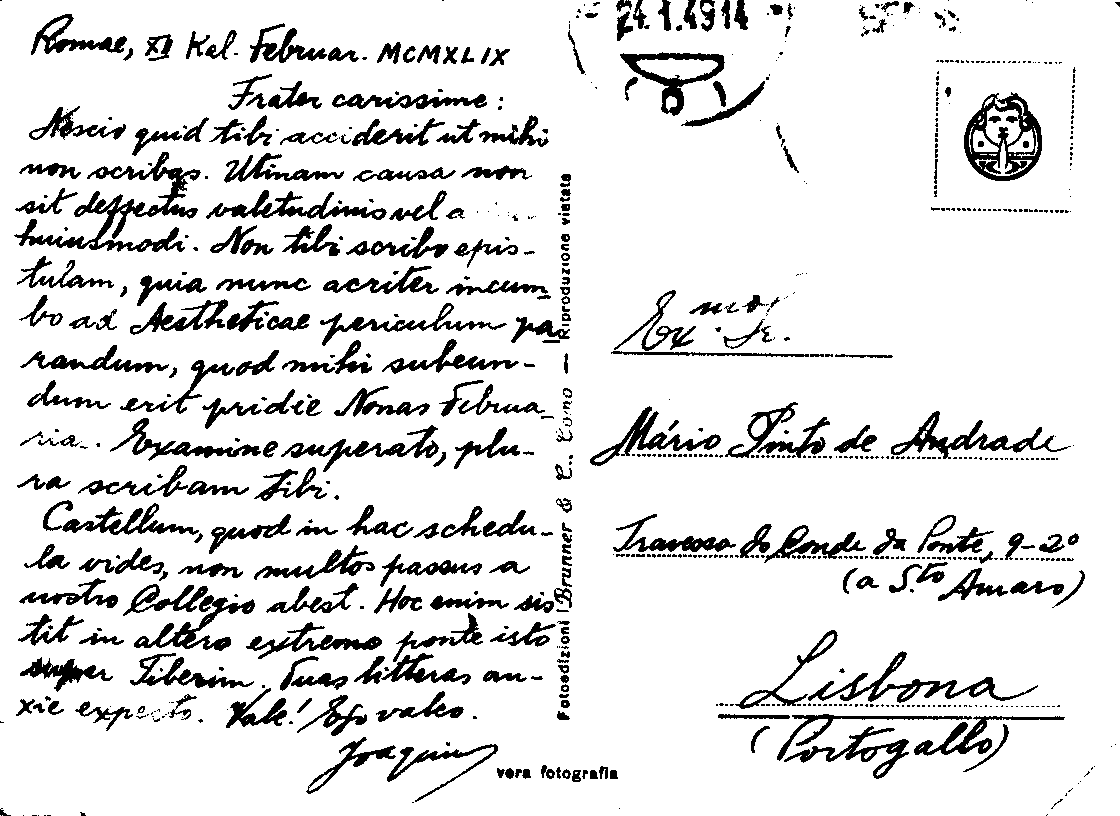 Romae, XII Kal. Februar. MCMXLIX
Frater carissime:
Nescio quid tibi acciderit ut mihi
non scribas. Utinam causa non
sit deffectus valetudinis vel a
huiusmodi. Non tibi scribo epis-
tulam, quia nunc acriter incum-
bo ad Aestheticae periculum pa-
randum, quod mihi subeun-
dum erit pridie Nonas Februa-
ria. Examine superato, plu-
ra scribam tibi.
Castellum, quod in hac schedu-
la vides, non multos passus a
nostro Collegio abest. Hoc enim sis-
tit in altero extremo ponte isto
super Tiberim. Tuas litteras an-
xie expecto. Vale! Ego valeo.
Joaquim
vera fotografia
Fotoedizioni Brunner & C., Como — Riproduzione vietata
24.1.4914
Ex.mo Sr.
Mário Pinto de Andrade
Travessa do Conde da Ponte, 9-2º
(a S.to Amaro)
Lisbona
(Portogallo)